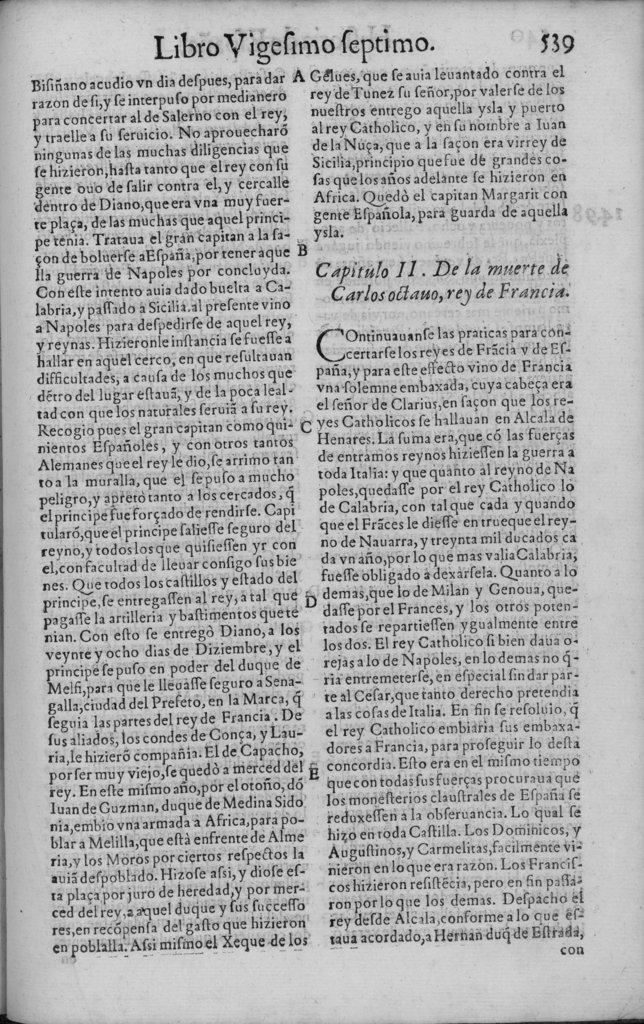 Libro Vigesimo septimo. 539
Bisiñano acudio vn dia despues, para dar
razon de si, y se interpuso por medianero
para concertar al de Salerno con el rey,
y traelle a su seruicio. No aprouecharõ
ningunas de las muchas diligencias que
se hizieron, hasta tanto que el rey con su
gente ouo de salir contra el, y cercalle
dentro de Diano, que era vna muy fuer-
te plaça, de las muchas que aquel princi-
pe tenia. Trataua el gran capitan a la sa-
çon de boluerse a España, por tener aque
lla guerra de Napoles por concluyda.
Con este intento auia dado buelta a Ca-
labria, y passado a Sicilia. al presente vino
a Napoles para despedirse de aquel rey,
y reynas. Hizieronle instancia se fuesse a
hallar en aquel cerco, en que resultauan
difficultades, a causa de los muchos que
dẽtro del lugar estauã, y de la poca leal-
tad con que los naturales seruiã a su rey.
Recogio pues el gran capitan como qui-
nientos Españoles, y con otros tantos
Alemanes que el rey le dio, se arrimo tan
to a la muralla, que el se puso a mucho
peligro, y apretò tanto a los cercados, q̃
el principe fue forçado de rendirse. Capi
tularõ, que el principe saliesse seguro del
reyno, y todos los que quisiessen yr con
el, con facultad de lleuar consigo sus bie
nes. Que todos los castillos y estado del
principe, se entregassen al rey, a tal que
pagasse la artilleria y bastimentos que te
nian. Con esto se entregò Diano, a los
veynte y ocho dias de Diziembre, y el
principe se puso en poder del duque de
Melfi, para que le lleuasse seguro a Sena-
galla, ciudad del Prefeto, en la Marca, q̃
seguia las partes del rey de Francia. De
sus aliados, los condes de Conça, y Lau-
ria, le hizierõ compañia. El de Capacho,
por ser muy viejo, se quedò a merced del
rey. En este mismo año, por el otoño, dõ
Iuan de Guzman, duque de Medina Sido
nia, embio vna armada a Africa, para po-
blar a Melilla, que està enfrente de Alme
ria, y los Moros por ciertos respectos la
auiã despoblado. Hizose assi, y diose es-
ta plaça por juro de heredad, y por mer-
ced del rey, a aquel duque y sus successo
res, en recõpensa del gasto que hizieron
en poblalla. Assi mismo el Xeque de los
A
B
C
D
E
Gelues, que se auia leuantado contra el
rey de Tunez su señor, por valerse de los
nuestros entrego aquella ysla y puerto
al rey Catholico, y en su nombre a Iuan
de la Nuça, que a la saçon era virrey de
Sicilia, principio que fue de grandes co-
sas que los años adelante se hizieron en
Africa. Quedò el capitan Margarit con
gente Española, para guarda de aquella
ysla.
Capitulo II. De la muerte de
Carlos octauo, rey de Francia.
COntinuauanse las praticas para con-
certarse los reyes de Frãcia y de Es-
paña, y para este effecto vino de Francia
vna solemne embaxada, cuya cabeça era
el señor de Clarius, en saçon que los re-
yes Catholicos se hallauan en Alcala de
Henares. La suma era, que cõ las fuerças
de entramos reynos hiziessen la guerra a
toda Italia: y que quanto al reyno de Na
poles, quedasse por el rey Catholico lo
de Calabria, con tal que cada y quando
que el Frãces le diesse en trueque el rey-
no de Nauarra, y treynta mil ducados ca
da vn año, por lo que mas valia Calabria,
fuesse obligado a dexarsela. Quanto a lo
demas, que lo de Milan y Genoua, que-
dasse por el Frances, y los otros poten-
tados se repartiessen ygualmente entre
los dos. El rey Catholico si bien daua o-
rejas a lo de Napoles, en lo demas no q̃-
ria entremeterse, en especial sin dar par-
te al Cesar, que tanto derecho pretendia
a las cosas de Italia. En fin se resoluio, q̃
el rey Catholico embiaria sus embaxa-
dores a Francia, para proseguir lo desta
concordia. Esto era en el mismo tiempo
que con todas sus fuerças procuraua que
los monesterios claustrales de España se
reduxessen a la obseruancia. Lo qual se
hizo en toda Castilla. Los Dominicos, y
Augustinos, y Carmelitas, facilmente vi-
nieron en lo que era razon. Los Francis-
cos hizieron resistẽcia, pero en fin passa-
ron por lo que los demas. Despacho el
rey desde Alcala, conforme a lo que es-
taua acordado, a Hernan duq̃ de Estrada,
con